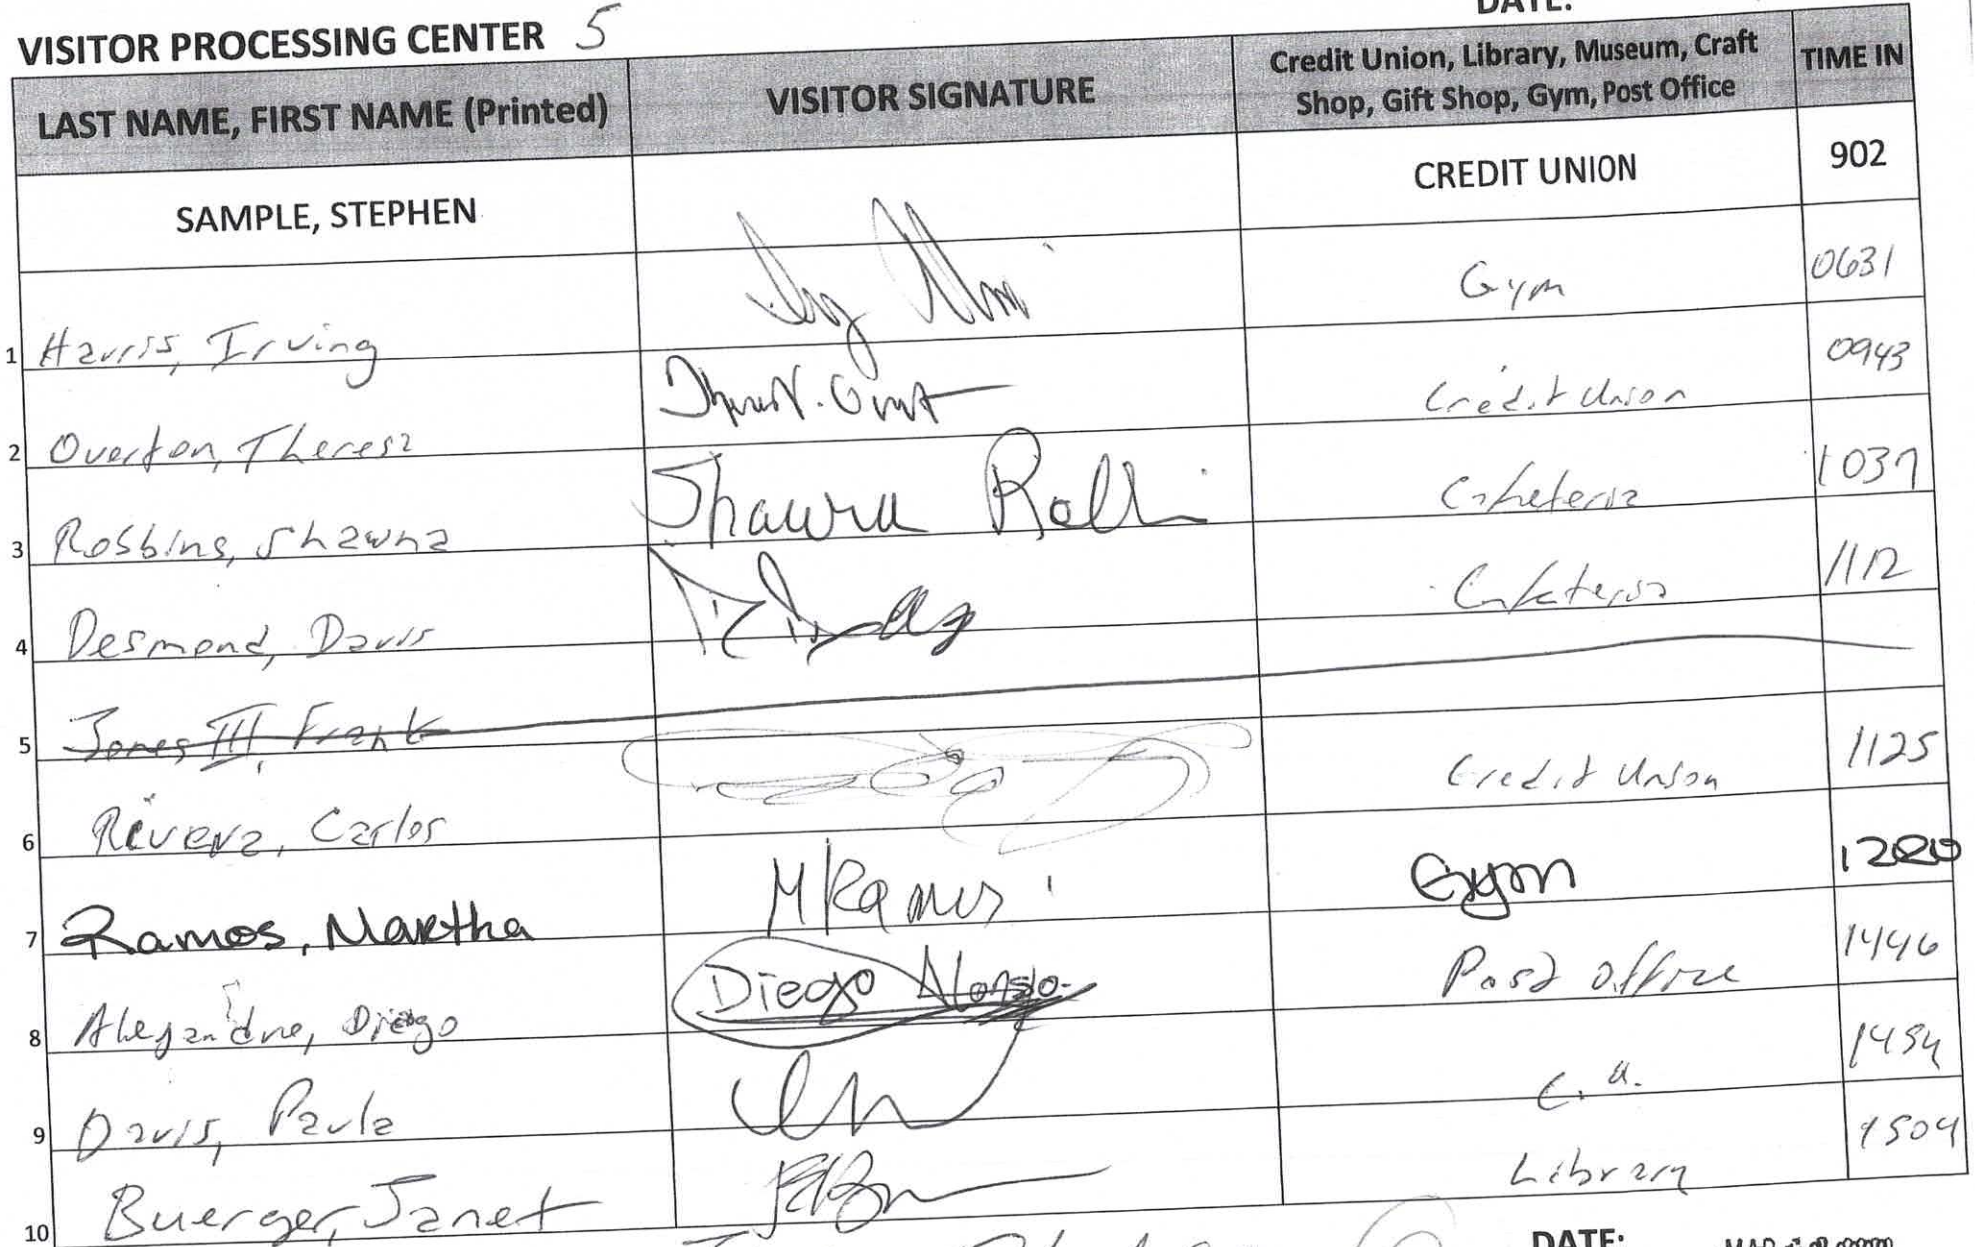 VISITOR PROCESSING CENTER 5 DATE:
LAST NAME, FIRST NAME (Printed) VISITOR SIGNATURE Credit Union, Library, Museum, Craft Shop, Gift Shop, Gym, Post Office TIME IN
SAMPLE, STEPHEN CREDIT UNION 902
1 Harris, Irving Gym 0631
2 Overton, Theresa Credit Union 0943
3 Robbins, Shawna Shawna Cafeteria 1037
4 Desmond, Davis Cafeteria 1112
5 Jones III, Frank
6 Rivera, Carlos Credit Union 1125
7 Ramos, Martha M Ramos Gym 1220
8 Diego Diego Alonso Post Office 1446
9 Davis, Paula C.U. 1454
10 Buerger, Janet Library 1504
DATE: